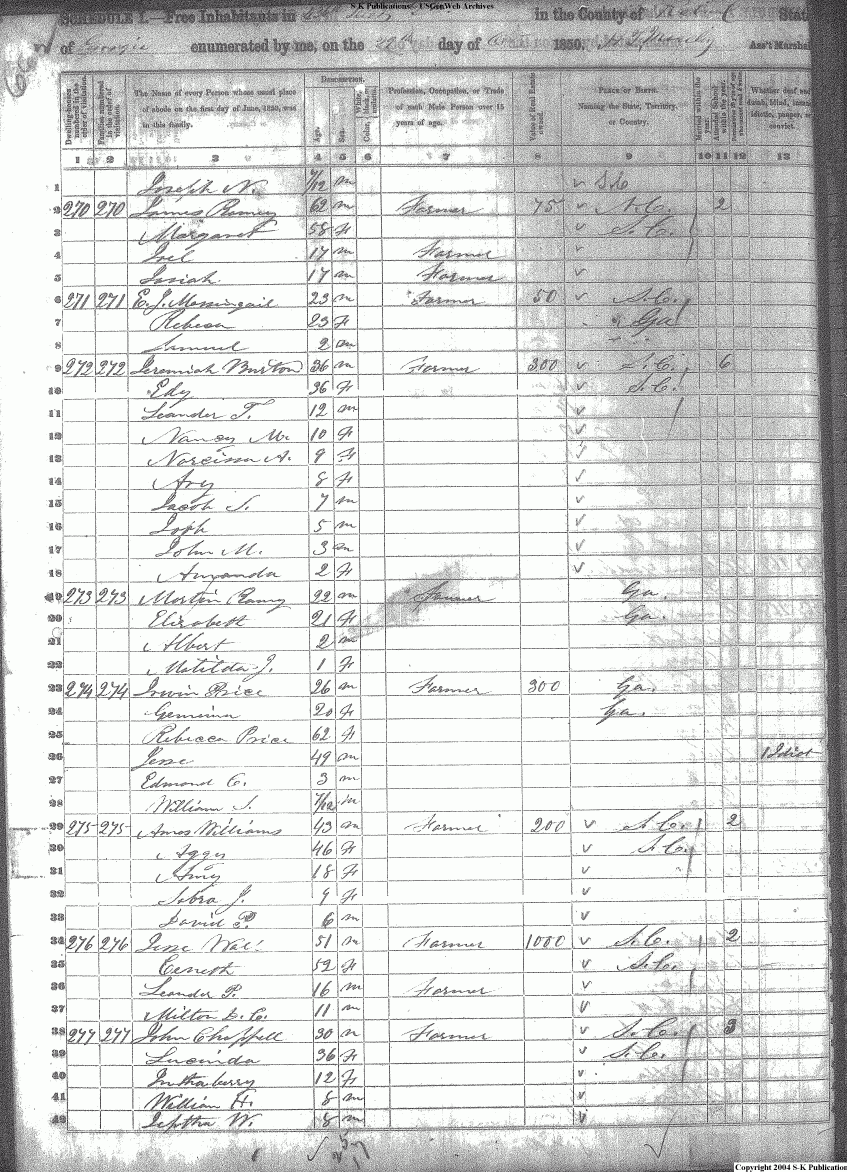 S-K Publications - USGenWeb Archives
SCHEDULE I.—Free Inhabitants in in the County of State
of Georgia enumerated by me, on the day of 1850. Ass't Marshal
Dwelling-houses numbered in the order of visitation. Families numbered in the order of visitation. The Name of every Person whose usual place of abode on the first day of June, 1850, was in this family. Description. Age. Sex. Color, White, black, or mulatto. Profession, Occupation, or Trade of each Male Person over 15 years of age. Value of Real Estate owned. Place of Birth. Naming the State, Territory, or Country. Married within the year. Attended School within the year. Whether deaf and dumb, blind, insane, idiotic, pauper, or convict.
1 2 3 4 5 6 7 8 9 10 11 12 13
1 Joseph N. 7/12 m ✓ S.C.
2 270 270 James Ramey 62 m Farmer 75 ✓ S.C. 2
3 Margaret 58 F ✓ S.C.
4 Joel 17 m Farmer ✓
5 Josiah 17 m Farmer ✓
6 271 271 E. J. Massingail 23 m Farmer 50 ✓ S.C.
7 Rebeca 23 F Ga
8 Samuel 2 m
9 272 272 Jeremiah Burton 36 m Farmer 300 ✓ S.C. 6
10 Edy 36 F ✓ S.C.
11 Leander T. 12 m ✓
12 Nancy M. 10 F ✓
13 Narcissa A. 9 F ✓
14 Ary 8 F ✓
15 Jacob S. 7 m ✓
16 Joph 5 m ✓
17 John M. 3 m ✓
18 Amanda 2 F ✓
19 273 273 Martin Ramy 22 m Farmer Ga.
20 Elizabeth 21 F Ga.
21 Albert 2 m
22 Matilda J. 1 F
23 274 274 Irwin Price 26 m Farmer 300 Ga.
24 Gemima 20 F Ga.
25 Rebecca Price 62 F
26 Jesse 49 m 1 Idiot
27 Edmond C. 3 m
28 William S. 7/12 m
29 275 275 Amos Williams 43 m Farmer 200 ✓ S.C. 2
30 Aggy 46 F ✓ S.C.
31 Amy 18 F ✓
32 J. 9 F ✓
33 David P. 6 m ✓
34 276 276 Jesse 51 m Farmer 1000 ✓ S.C. 2
35 52 F ✓ S.C.
36 Leander P. 16 m Farmer ✓
37 Milton L. C. 11 m ✓
38 277 277 John Chappell 30 m Farmer ✓ S.C. 3
39 Lucinda 36 F ✓ S.C.
40 12 F ✓
41 William H. 8 m ✓
42 Jeptha W. 8 m ✓
25
17
Copyright 2004 S-K Publications